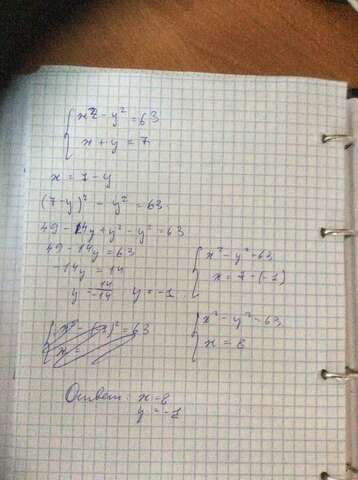 x² - y² = 63
x + y = 7
x = 7 - y
(7-y)² - y² = 63
49 - 14y + y² - y² = 63
49 - 14y = 63
-14y = 14
y = 14/-14 y = -1
x² - y² = 63
x = 7 - (-1)
x² - y² = 63
x = 8
Ответ: x = 8
y = -1